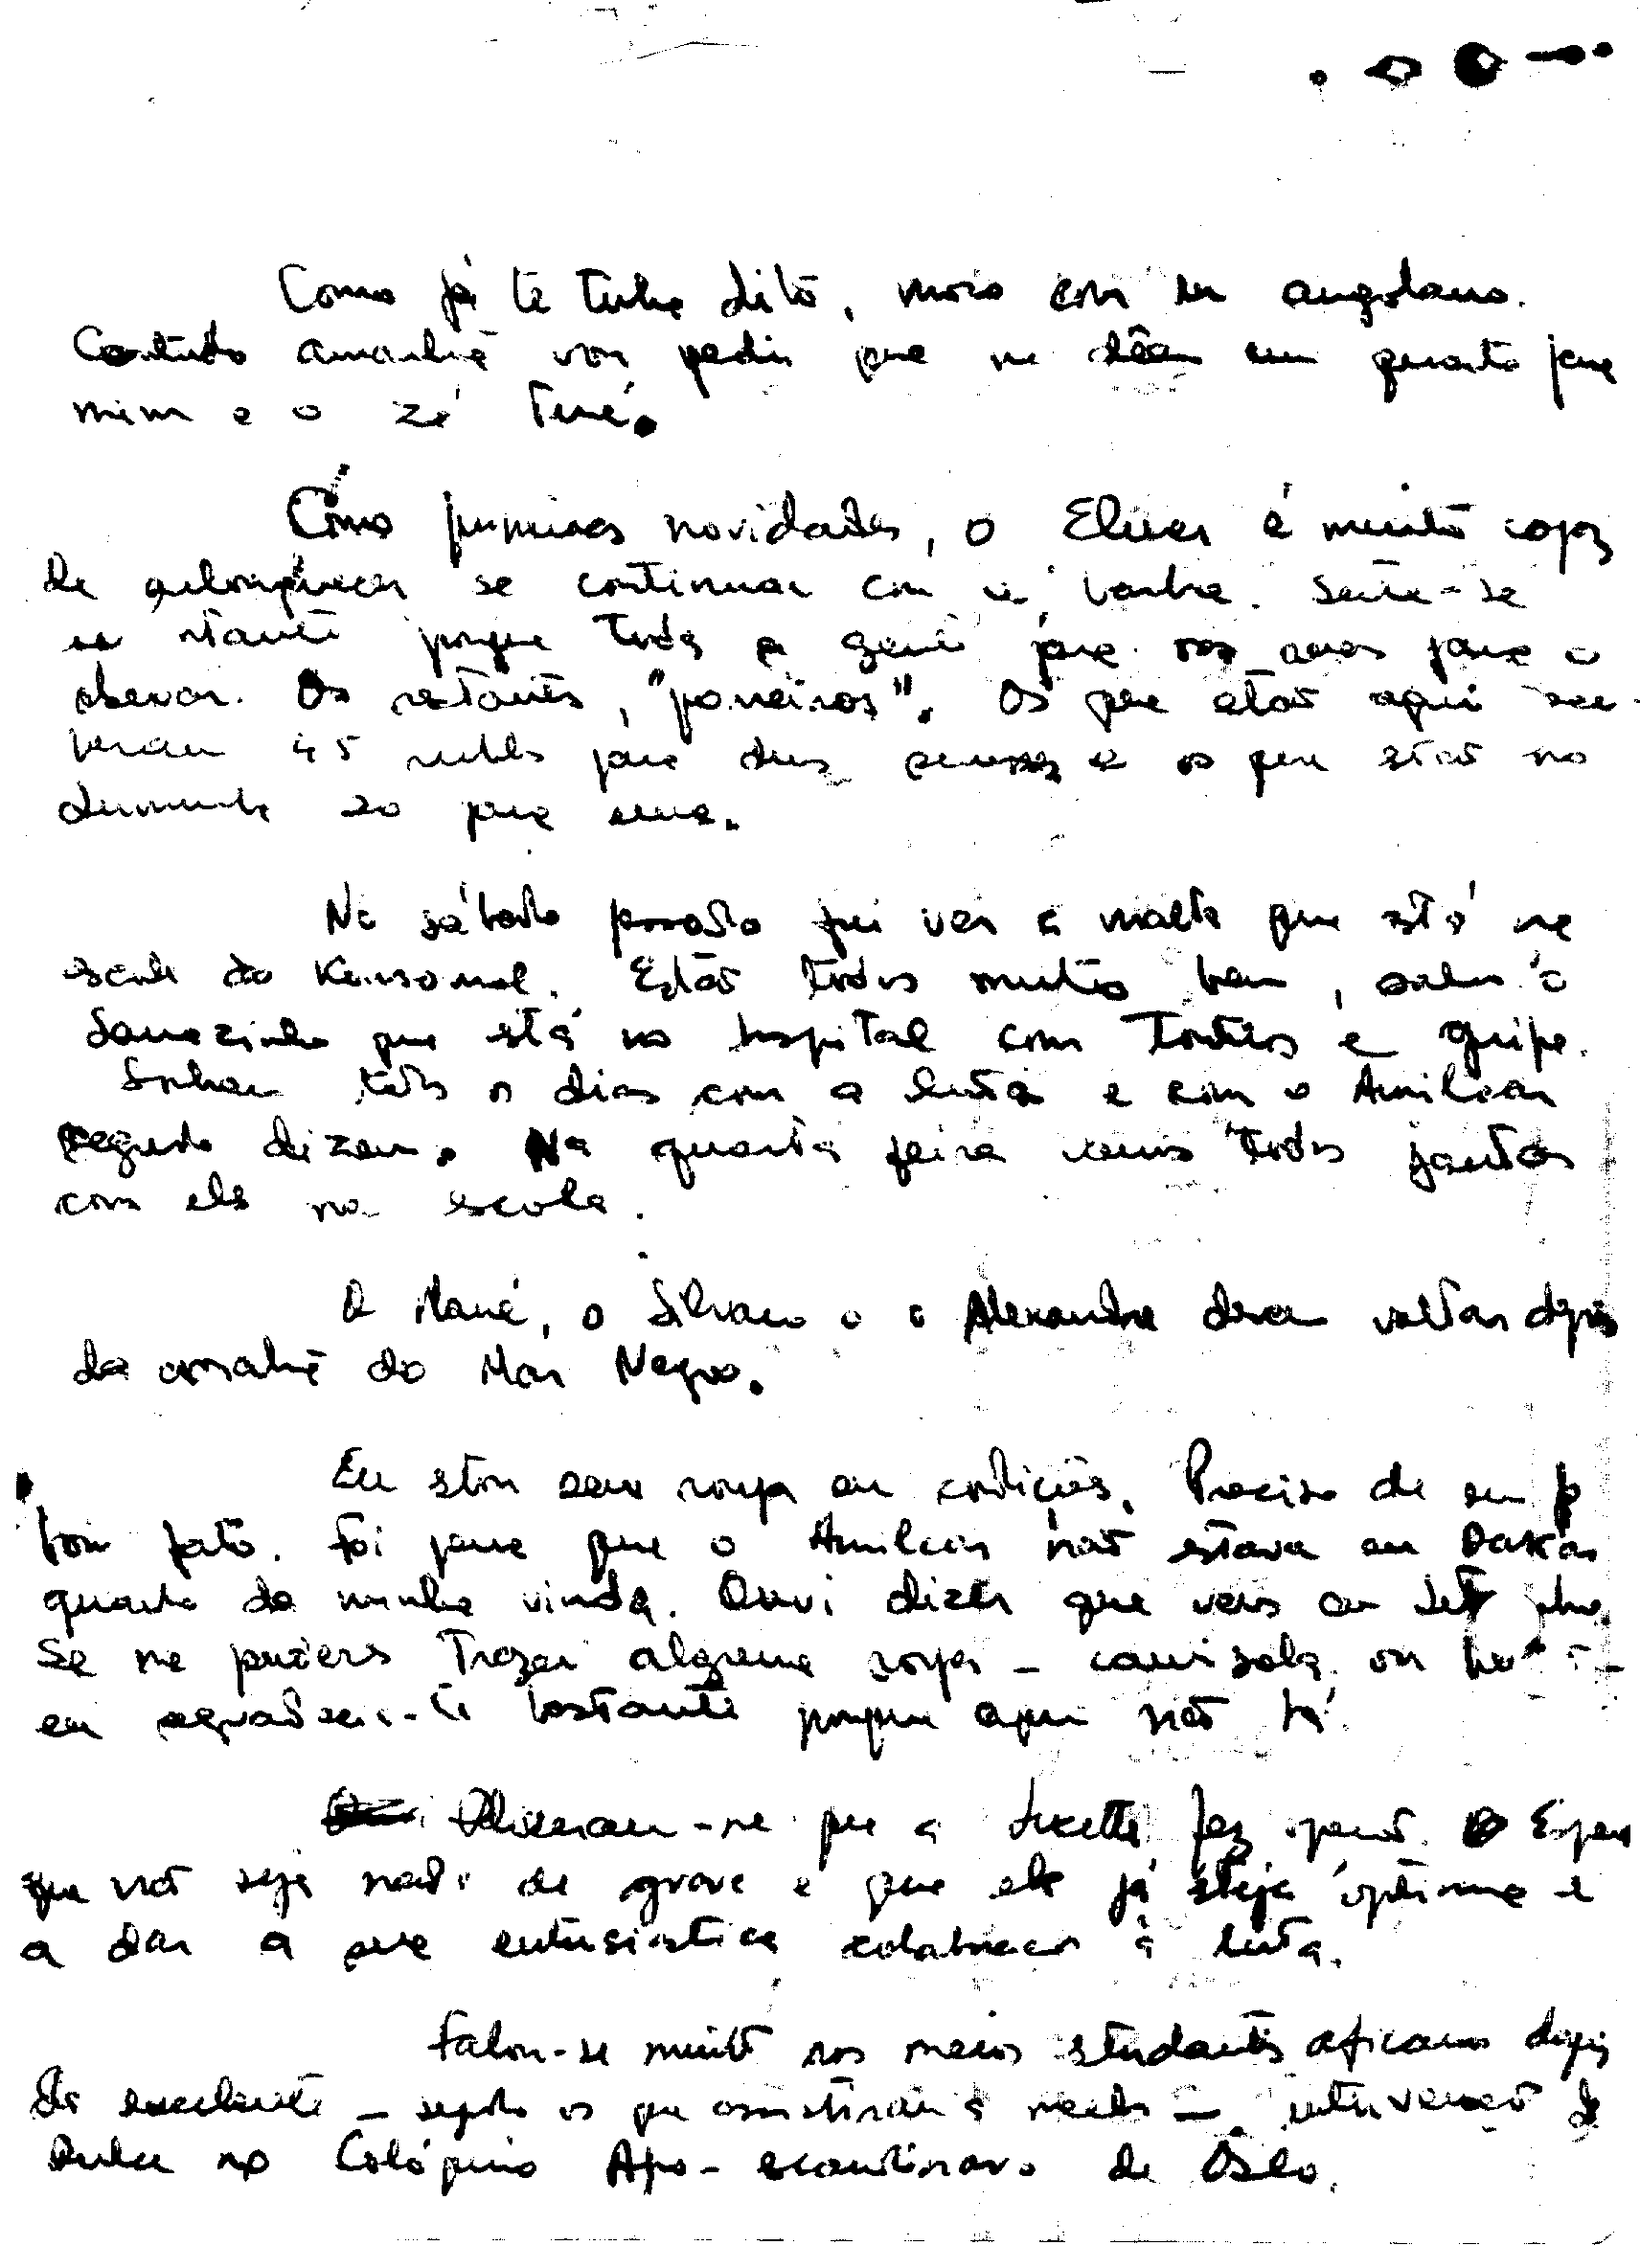 Como já te tinha dito, moro com um angolano.
Contudo amanhã vou pedir que me dêem um quarto para
mim e o Zé Tené.
Como primeiras novidades, o Eliezer é muito capaz
de se continuar com a vodka. Sente-se
porque toda a gente que
Os restantes, "porreiros". Os que estão aqui rece-
beram 45 rublos para duas semanas e os que estão no
20 para uma.
No sábado passado fui ver a malta que está na
escola do Komsomol. Estão todos muito bem, salvo o
que está no hospital com tonturas e gripe.
Sonham todos os dias com a luta e com o Amilcar
segundo dizem. Na quarta feira vamos todos jantar
com eles na escola.
O Mané, o Silvano e o Alexandre devem voltar depois
de amanhã do Mar Negro.
Eu estou sem roupa em condições. Preciso de um
bom fato. Foi pena que o Amilcar não estava em Dakar
quando da minha vinda. Ouvi dizer que vens em Setembro.
Se me puderes trazer alguma roupa - camisola ou
eu agradeço-te bastante porque aqui não há.
Disseram-me que a Lucette fez operação. Espero
que não seja nada de grave e que ela já esteja óptima e
a dar a sua entusiástica colaboração à luta.
Falou-se muito nos meios estudantis africanos depois
da excelente - segundo os que assistiram à mesma - intervenção da
Dulce no Colóquio Afro-escandinavo de Oslo.